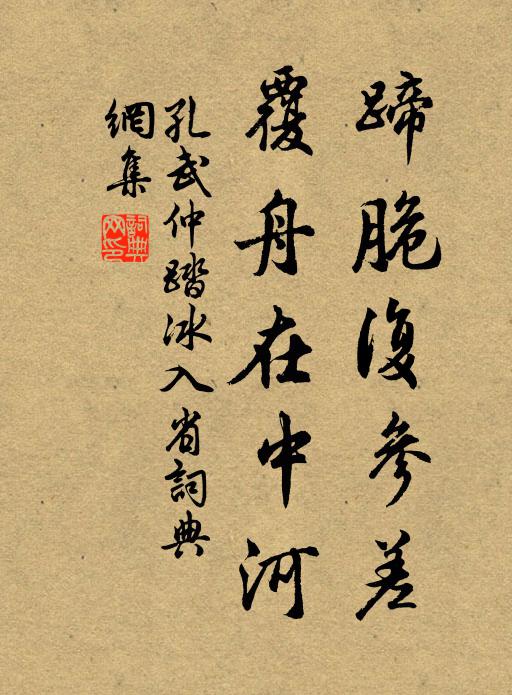 蹄脆復參差
覆舟在中河
孔武仲踏冰入省詞典
網集
詞典
网印